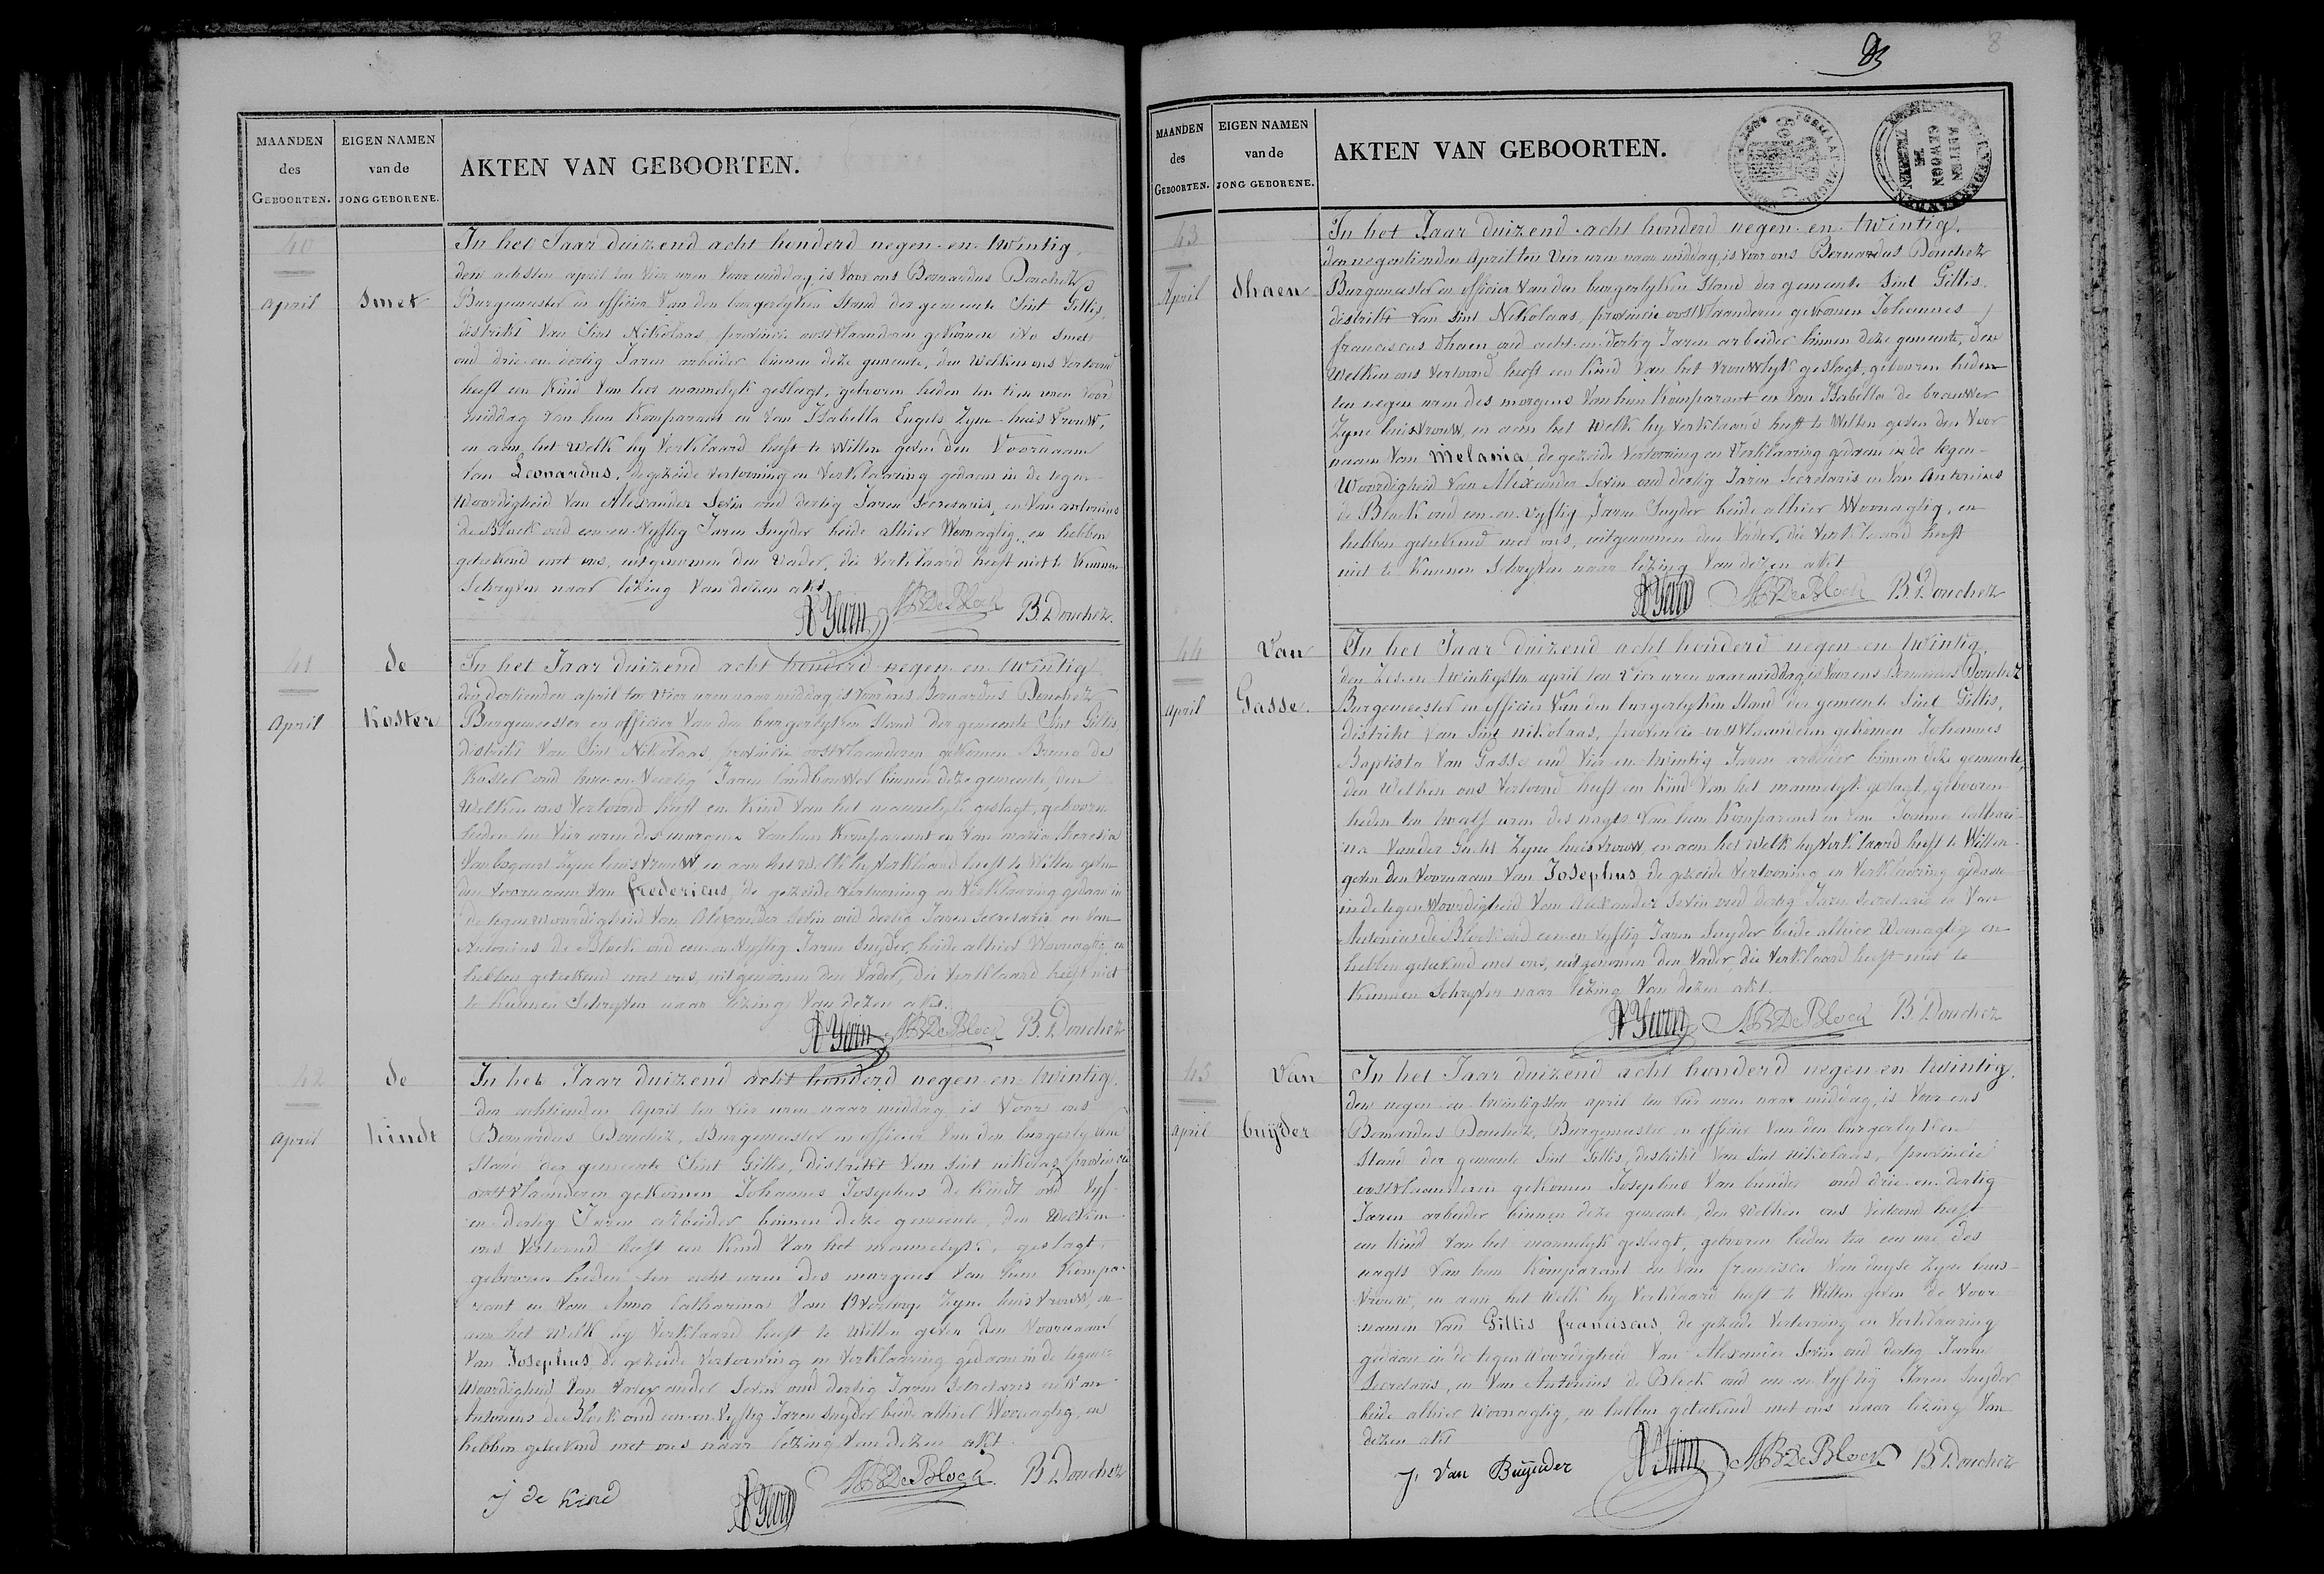 MAANDEN
des
GEBOORTEN.
EIGEN NAMEN
van de
JONG GEBORENE.
AKTEN VAN GEBOORTEN.
40
April
Smet
In het Jaar duizend acht honderd negen-en-twintig,
den achsten april ten vier uren voor middag, is voor ons Bernardus Douchez
Burgemeester en officier van den burgerlyken Stand der gemeente Sint Gillis,
distrikt van Sint Nikolaas, provincie oostvlaanderen gekomen ivo Smet
oud drie-en-dertig Jaren arbeider binnen deze gemeente, den welken ons vertoond
heeft een kind van het mannelyk geslagt, gebooren heden ten tien uren voor
middag van hem komparant en van Isabella Engels Zyne huisvrouw,
en aan het welk hy verklaard heeft te willen geven den voornaam
van Leonardus, de gezeide vertooning en verklaaring gedaan in de tegen-
woordigheid van Alexander Sevin oud dertig Jaren Secretaris, en van antonius
de Block oud een-en-vyftig Jaren Snyder beide alhier woonagtig, en hebben
geteekend met ons, uitgenomen den vader, die verklaard heeft niet te kunnen
Schryven naar lezing van dezen akt
A Sevin ABDeBlock B. Douchez
41
April
de
Koster
In het Jaar duizend acht honderd negen-en-twintig
den dertienden april ten vier uren naar middag, is voor ons Bernardus Douchez
Burgemeester en officier van den burgerlyken Stand der gemeente Sint Gillis,
distrikt van Sint Nikolaas, provincie oostvlaanderen gekomen Bruno de
Koster oud twee-en-veertig Jaren landbouwer binnen deze gemeente, den
welken ons vertoond heeft een kind van het mannelyk geslagt, gebooren
heden ten vier uren des morgens van hem komparant en van maria theresia
Zyne huisvrouw en aan het welk hy verklaard heeft te willen geven
den voornaam van fredericus, de gezeide vertooning en verklaaring gedaan in
de tegenwoordigheid van Alexander Sevin oud dertig Jaren Secretaris en van
Antonius de Block oud een-en-vyftig Jaren Snyder, beide alhier woonagtig, en
hebben geteekend met ons, uitgenomen den vader, die verklaard heeft niet
te kunnen Schryven naar lezing van dezen akt.
A Sevin ABDeBlock B. Douchez
42
April
de
Kindt
In het Jaar duizend acht honderd negen-en-twintig,
den achtienden April ten vier uren naar middag is voor ons
Bernardus Douchez, Burgemeester en officier van den burgerlyken
Stand der gemeente Sint Gillis, distrikt van Sint nikolas, provincie
oostvlaanderen gekomen Johannes Josephus de Kindt oud vyf-
en-dertig Jaren arbeider binnen deze gemeente, den welken
ons vertoond heeft een kind van het mannelyk geslagt,
gebooren heden ten acht uren des morgens van hem kompa-
rant en van Anna Catharina Van Zyne huisvrouw, en
aan het welk hy verklaard heeft te willen geven den voornaam
van Josephus, de gezeide vertooning en verklaaring gedaan in de tegen-
woordigheid van Alexander Sevin oud dertig Jaren Secretaris en van
Antonius de Block oud een-en-vyftig Jaren Snyder beide alhier woonagtig, en
hebben geteekend met ons naar lezing van dezen akt.
J de Kind A Sevin ABDeBlock B. Douchez
8
MAANDEN
des
GEBOORTEN.
EIGEN NAMEN
van de
JONG GEBORENE.
AKTEN VAN GEBOORTEN.
43
April
dhaen
In het Jaar duizend acht honderd negen-en-twintig,
den negentienden April ten vier uren naar middag, is voor ons Bernardus Douchez
Burgemeester en officier van den burgerlyken Stand der gemeente Sint Gillis,
distrikt van Sint Nikolaas, provincie oostvlaanderen gekomen Johannes
franciscus dhaen oud acht-en-dertig Jaren arbeider binnen deze gemeente, den
welken ons vertoond heeft een kind van het vrouwlyk geslagt, gebooren heden
ten negen uren des morgens van hem komparant en van Isabella de brauwer
Zyne huisvrouw, en aan het welk hy verklaard heeft te willen geven den voor
naam van Melania, de gezeide vertooning en verklaaring gedaan in de tegen-
woordigheid van Alexander Sevin oud dertig Jaren Secretaris en van Antonius
de Block oud een-en-vyftig Jaren Snyder beide alhier woonagtig, en
hebben geteekend met ons, uitgenomen den vader, die verklaard heeft
niet te kunnen Schryven naar lezing van dezen akt
A Sevin ABDeBlock B. Douchez
44
April
Van
Gasse
In het Jaar duizend acht honderd negen-en-twintig,
den zes-en-twintigsten april ten vier uren naar middag, is voor ons Bernardus Douchez
Burgemeester en officier van den burgerlyken Stand der gemeente Sint Gillis,
distrikt van Sint nikolaas, provincie oostvlaanderen gekomen Johannes
Baptista Van Gasse oud vier-en-twintig Jaren arbeider binnen deze gemeente,
den welken ons vertoond heeft een kind van het mannelyk geslagt, gebooren
heden ten twaelf uren des nagts van hem komparant en van Joanna Cathari-
na Vander Zyne huisvrouw, en aan het welk hy verklaard heeft te willen
geven den voornaam van Josephus, de gezeide vertooning en verklaaring gedaan
in de tegenwoordigheid van Alexander Sevin oud dertig Jaren Secretaris en van
Antonius de Block oud een-en-vyftig Jaren Snyder beide alhier woonagtig en
hebben geteekend met ons, uitgenomen den vader, die verklaard heeft niet te
kunnen Schryven naar lezing van dezen akt.
A Sevin ABDeBlock B. Douchez
45
April
Van
buÿder
In het Jaar duizend acht honderd negen-en-twintig,
den negen-en-twintigsten april ten vier uren naar middag, is voor ons
Bernardus Douchez, Burgemeester en officier van den burgerlyken
Stand der gemeente Sint Gillis, distrikt van Sint nikolaas, provincie
oostvlaanderen gekomen Josephus Van buÿder oud drie-en-dertig
Jaren arbeider binnen deze gemeente, den welken ons vertoond heeft
een kind van het mannelyk geslagt, gebooren heden ten een ure des
nagts van hem komparant en van francisca Van duyse Zyne huis-
vrouw, en aan het welk hy verklaard heeft te willen geven de voor-
namen van Gillis franciscus, de gezeide vertooning en verklaaring
gedaan in de tegenwoordigheid van Alexander Sevin oud dertig Jaren
Secretaris, en van Antonius de Block oud een-en-vyftig Jaren Snyder
beide alhier woonagtig, en hebben geteekend met ons naar lezing van
dezen akt
J. Van Buÿnder A Sevin ABDeBlock B. Douchez